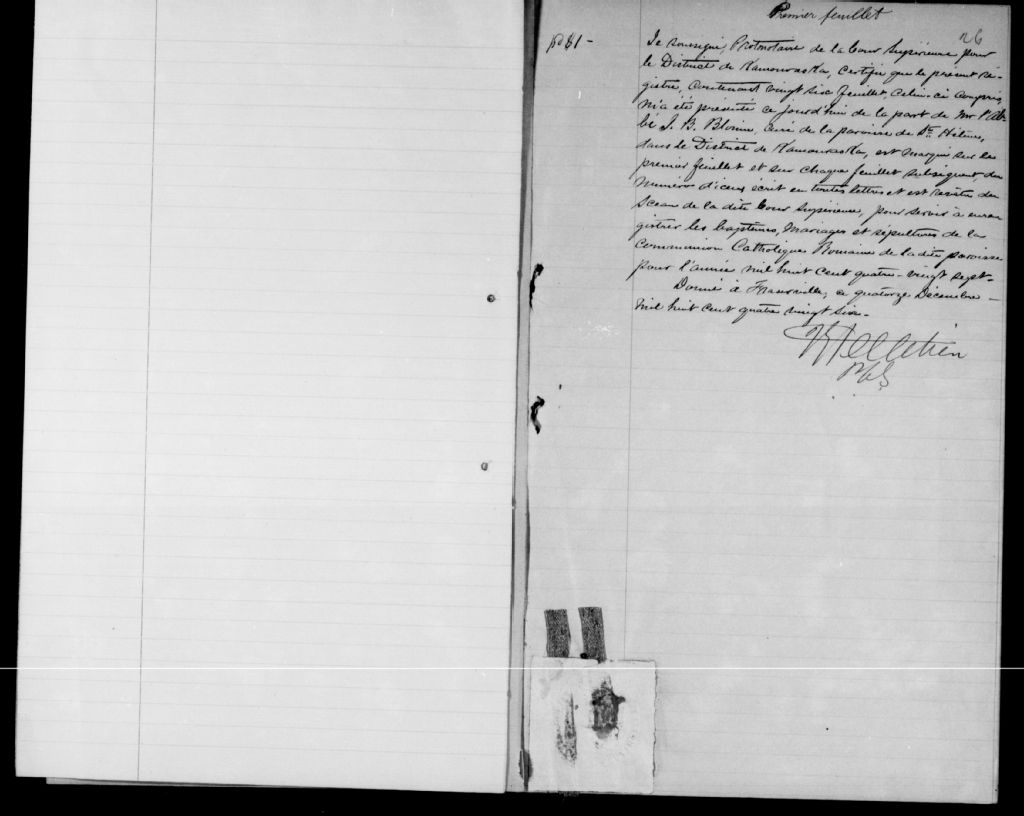 Premier feuillet
26
No 61 -
Je soussigné, Protonotaire de la Cour Supérieure pour
le District de Kamouraska, Certifie que le présent ré-
gistre, Contenant vingt six feuillet, celui-ci compris,
m'a été présenté ce jourd'hui de la part de Mr l'Ab-
bé J. B. Blouin, Curé de la paroisse de Ste Hélène,
dans le District de Kamouraska, est marqué sur le
premier feuillet et sur chaque feuillet subséquent, du
numéro d'iceux écrit en toutes lettres et est revêtu du
Sceau de la dite Cour Supérieure, pour servir à enre-
gistrer les baptêmes, mariages et sépultures de la
Communion Catholique Romaine de la dite paroisse
pour l'année mil huit cent quatre-vingt sept -
Donné à Fraserville, ce quatorze Décembre -
mil huit cent quatre vingt six -
Pelletier
PCS